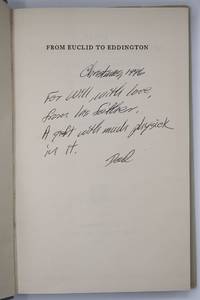 FROM EUCLID TO EDDINGTON
Christmas, 1996
For Will, with love,
from his father.
A gift with much physick
in it.